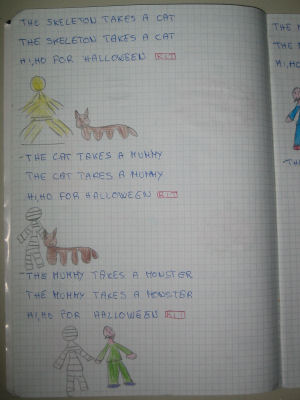 THE SKELETON TAKES A CAT
THE SKELETON TAKES A CAT
HI, HO FOR HALLOWEEN RIT
-THE CAT TAKES A MUMMY
THE CAT TAKES A MUMMY
HI, HO FOR HALLOWEEN RIT
-THE MUMMY TAKES A MONSTER
THE MUMMY TAKES A MONSTER
HI, HO FOR HALLOWEEN RIT
THE
THE
HI, HO
-TH